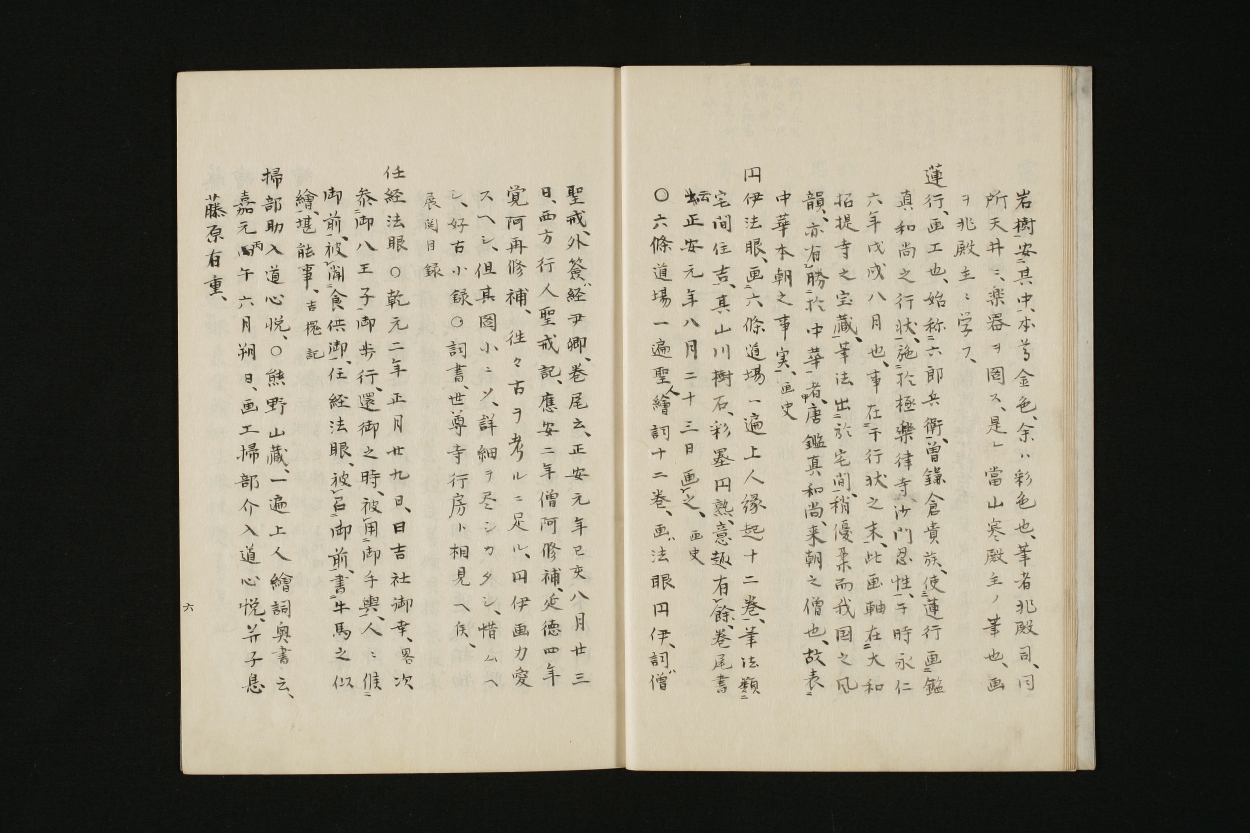 岩樹安其中、本尊金色、余ハ彩色也、筆者兆殿司、同
所天井ニ、楽器ヲ図ス、是レ當山寒殿主ノ筆也、画
ヲ兆殿主ニ学フ、
蓮行、画工也、始称六郎兵衛、曽鎌倉貴族、使蓮行画鑑
真和尚之行状、施於極楽律寺沙門忍性、于時永仁
六年戊戌八月也、事在于行状之末、此画軸在大和
招提寺之宝蔵、筆法出於宅間、稍優柔而我国之風
韻、亦有勝於中華者、唐鑑真和尚、来朝之僧也、故表
中華本朝之事実、画史
円伊法眼、画六條道場一遍上人縁起十二巻、筆法類
宅間住吉、其山川樹石、彩墨円熟、意趣有餘、巻尾書
云正安元年八月二十三日画之、画史
〇六條道場一遍聖人繪詞十二巻、画法眼円伊、詞僧
聖戒、外簽経尹卿、巻尾云、正安元年己亥八月廿三
日、西方行人聖戒記、應安二年僧阿修補延徳四年
覚阿再修補、往々古ヲ考ルニ足ル、円伊画力愛
スヘシ、但其図小ニメ、詳細ヲ尽シカタシ、惜ムヘ
シ、好古小録〇詞書、世尊寺行房ト相見ヘ候、
展閲目録
任経法眼〇乾元二年正月廿九日、日吉社御幸、畧次
参御八王子、御歩行、還御之時、被用御手輿、人々候
御前、被聞食供御、任経法眼、被召御前、書牛馬之似
繪、堪能事、吉槐記
掃部助入道心悦、〇熊野山蔵、一遍上人繪詞奥書云、
嘉元丙午六月朔日、画工掃部介入道心悦、并子息
藤原有重、
六